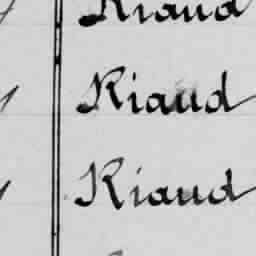 Riaud
Riaud
Riaud